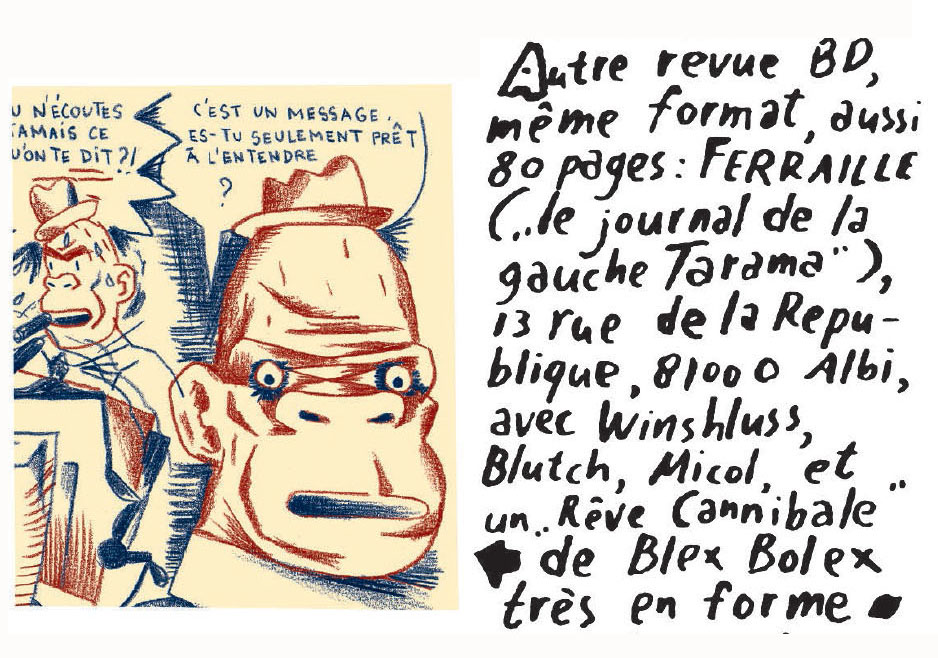 U N'ÉCOUTES
JAMAIS CE
U'ON TE DIT ?!
C'EST UN MESSAGE.
ES-TU SEULEMENT PRÊT
À L'ENTENDRE
?
Autre revue BD,
même format, aussi
80 pages : FERRAILLE
(..le journal de la
gauche Tarama¨),
13 rue de la Repu-
blique, 81000 Albi,
avec Winshluss,
Blutch, Micol, et
un..Rêve Cannibale¨
de Blex Bolex
très en forme